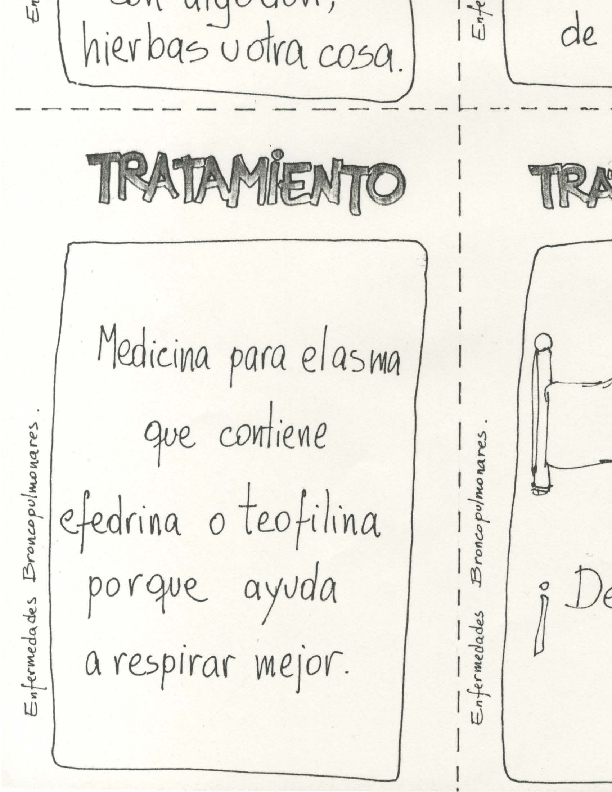 con algodón,
hierbas u otra cosa.
de
TRATAMIENTO
Medicina para el asma
que contiene
efedrina o teofilina
porque ayuda
a respirar mejor.
Enfermedades Broncopulmonares.
TRA
¡ De
Enfermedades Broncopulmonares.